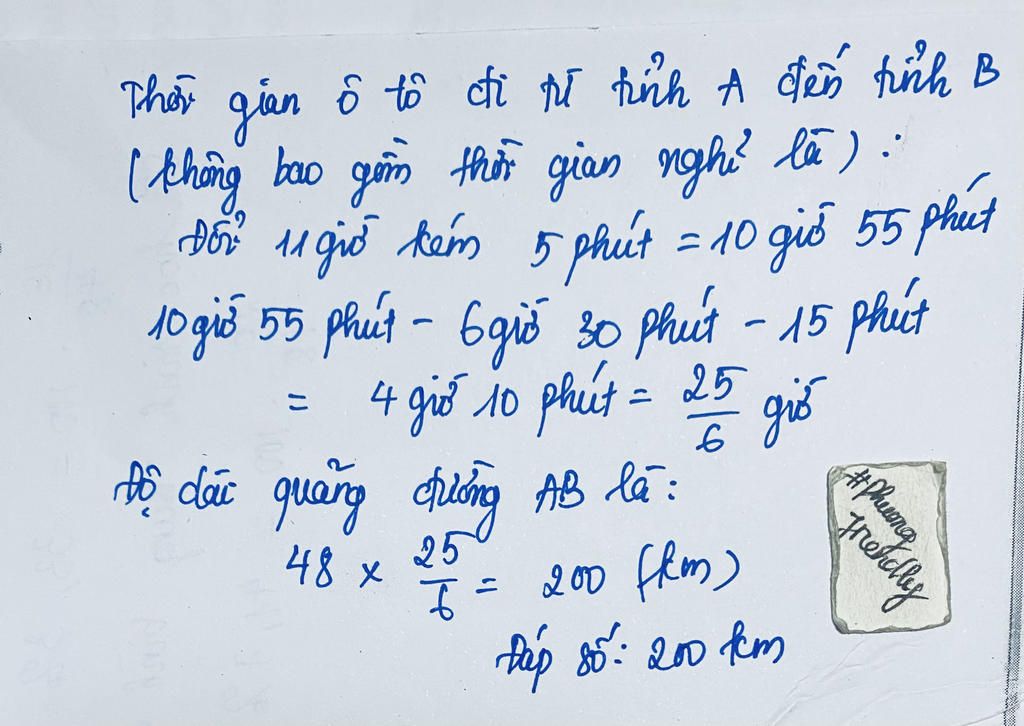 Thời gian ô tô đi từ tỉnh A đến tỉnh B
(không bao gồm thời gian nghỉ là) :
Đổi 11 giờ kém 5 phút = 10 giờ 55 phút
10 giờ 55 phút - 6 giờ 30 phút - 15 phút
= 4 giờ 10 phút = 25/6 giờ
Độ dài quãng đường AB là:
48 x 25/6 = 200 (km)
Đáp số: 200 km
#Phuong
Friendly